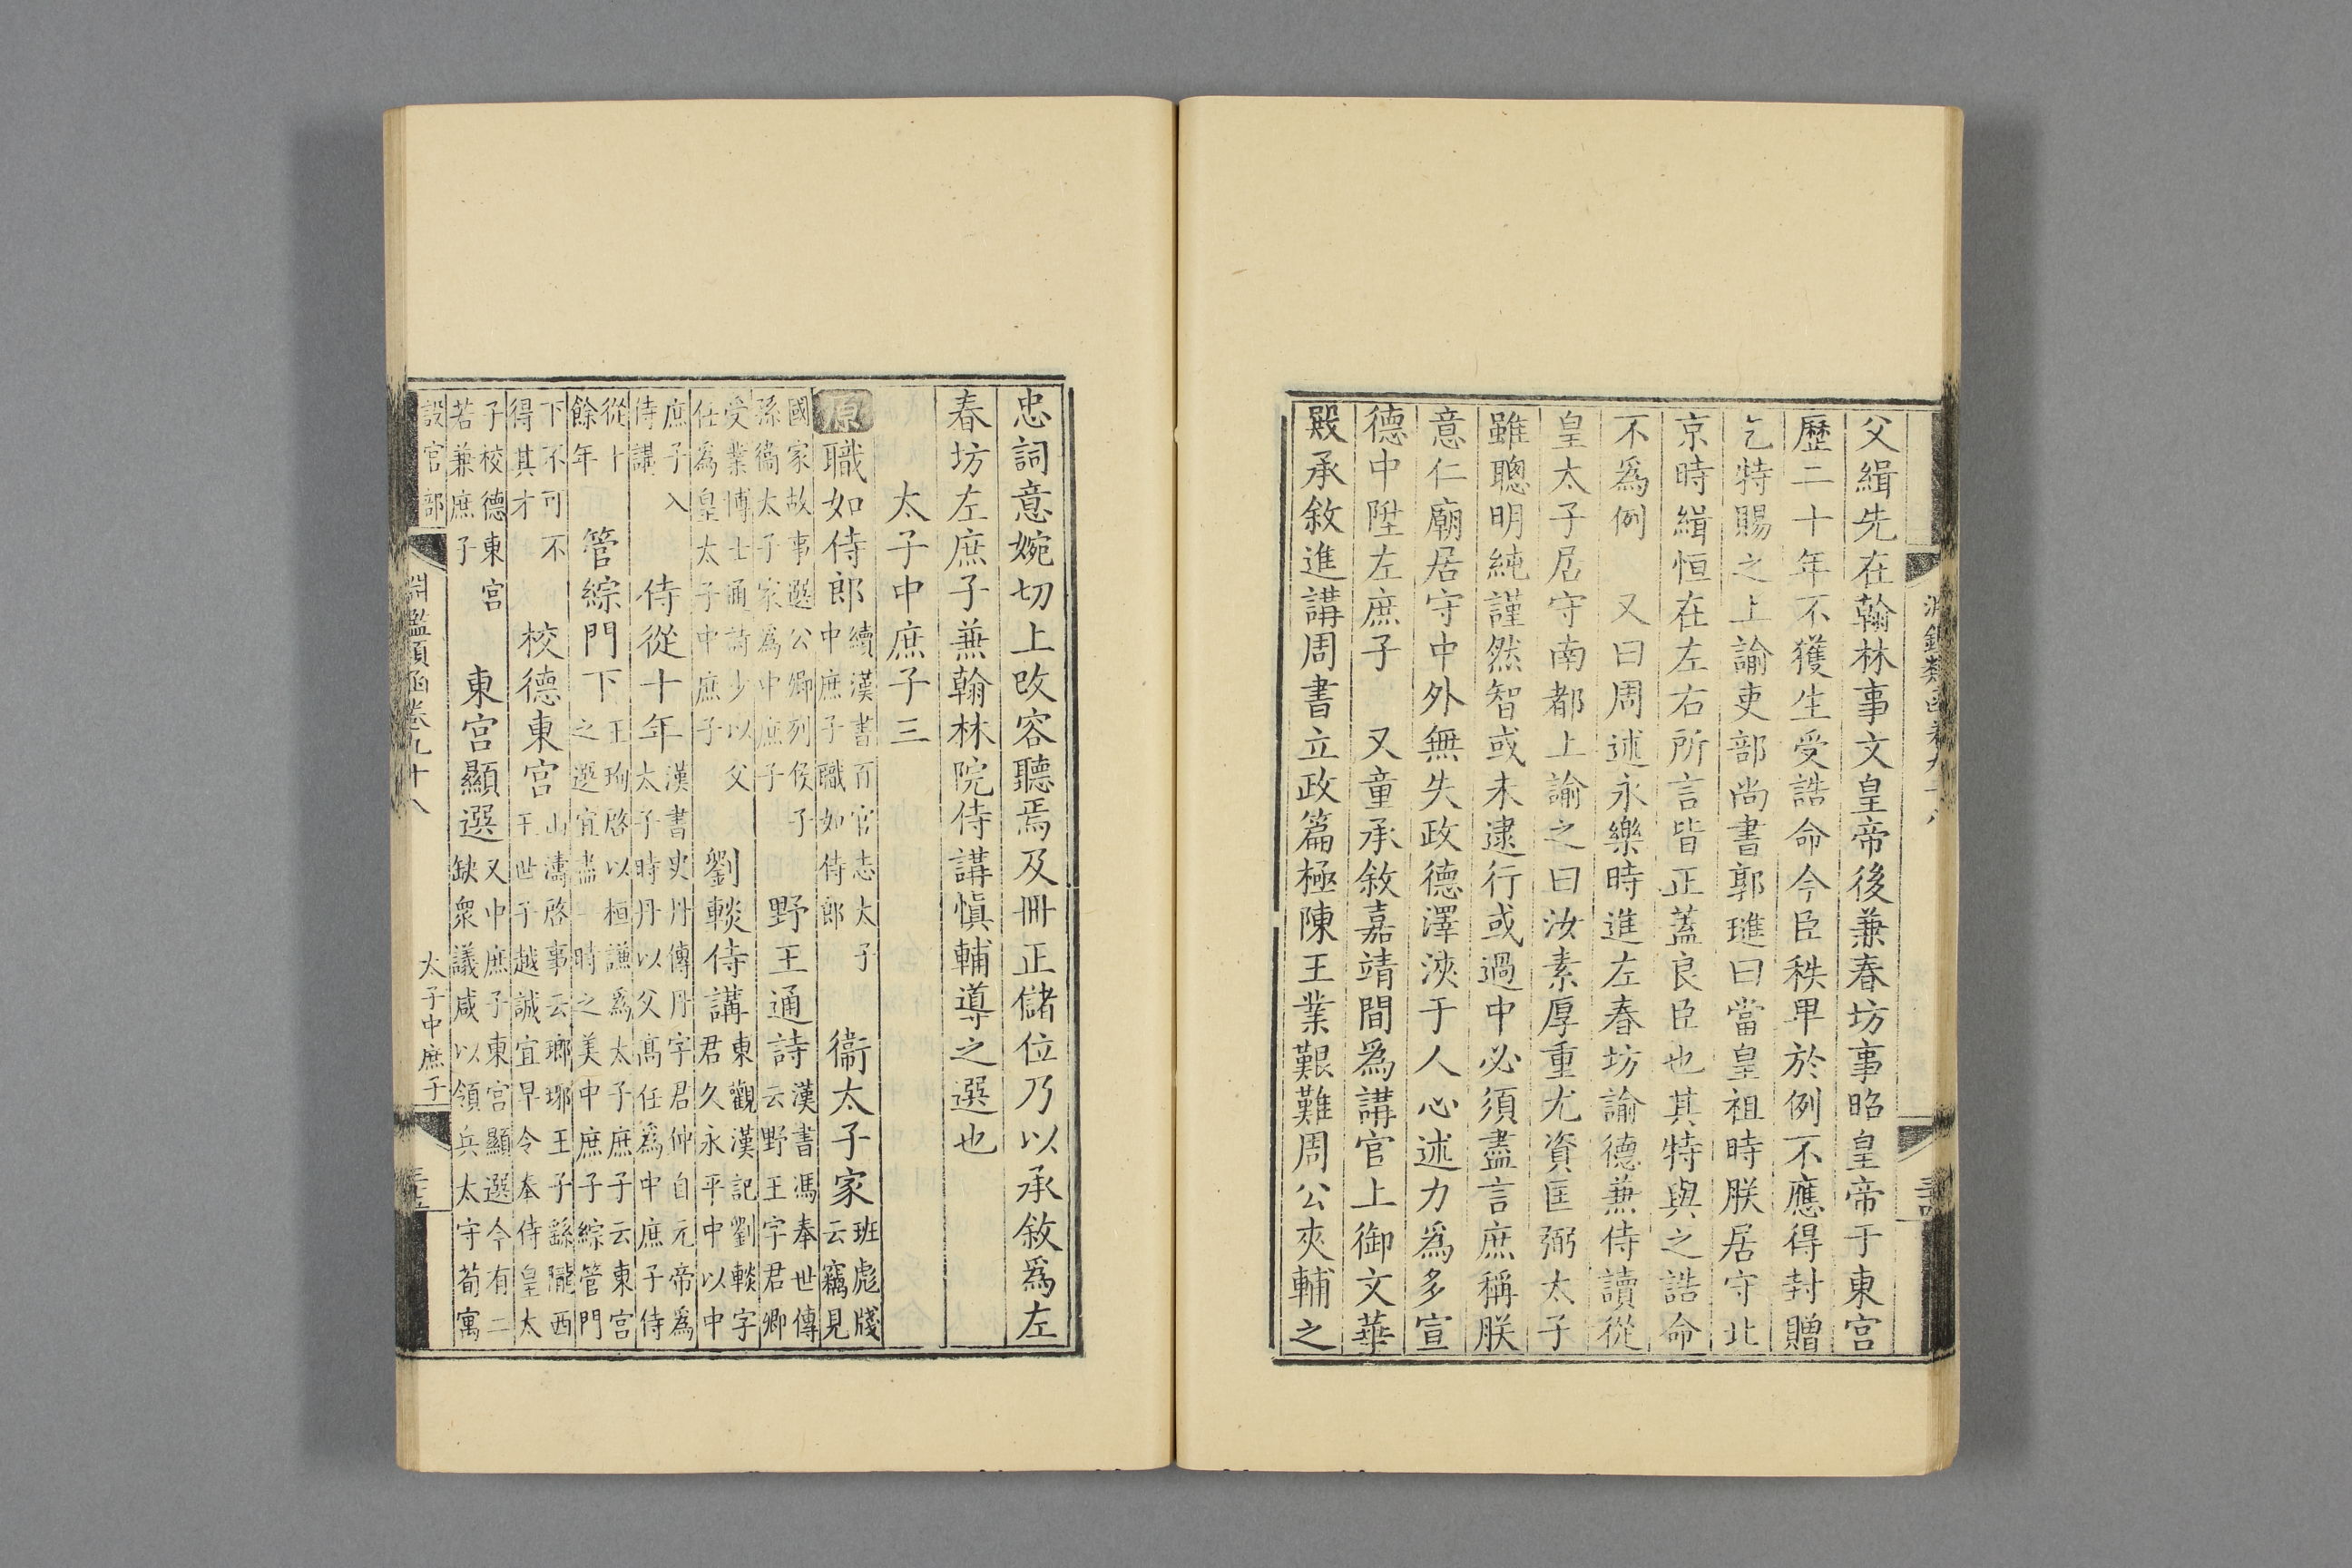 父緝先在翰林事文皇帝後兼春坊事昭皇帝于東宮
歷二十年不獲生受誥命今臣秩卑於例不應得封贈
乞特賜之上諭吏部尚書郭璡曰當皇祖時朕居守北
京時緝恒在左右所言皆正蓋良臣也其特與之誥命
不爲例　又曰周述永樂時進左春坊諭德兼侍讀從
皇太子居守南都上諭之曰汝素厚重尤資匡弼太子
雖聰明純謹然智或未逮行或過中必須盡言庶稱朕
意仁廟居守中外無失政德澤浹于人心述力爲多宣
德中陞左庶子　又童承敘嘉靖間爲講官上御文華
殿承敘進講周書立政篇極陳王業艱難周公夾輔之
忠詞意婉切上改容聽焉及冊正儲位乃以承敘爲左
春坊左庶子兼翰林院侍講愼輔導之選也
太子中庶子三
原職如侍郎續漢書百官志太子中庶子職如侍郎　衞太子家班彪牋云竊見
國家故事選公卿列侯子孫衞太子家爲中庶子　野王通詩漢書馮奉世傳云野王字君卿
受業博士通詩少以父任爲皇太子中庶子　劉輘侍講東觀漢記劉輘字君久永平中以中
庶子入侍講　侍從十年漢書史丹傳丹字君仲自元帝爲太子時丹以父高任爲中庶子侍
從十餘年　管綜門下王珣啓以桓謙爲太子庶子云東宮之選宜盡一時之美中庶子綜管門
下不可不得其才　校德東宮山濤啓事云瑯琊王子繇隴西王世子越誠宜早令奉侍皇太
子校德東宮若兼庶子　東宮顯選又中庶子東宮顯選今有二缺衆議咸以領兵太守荀寓
設官部
淵鑑類函卷九十八
太子中庶子